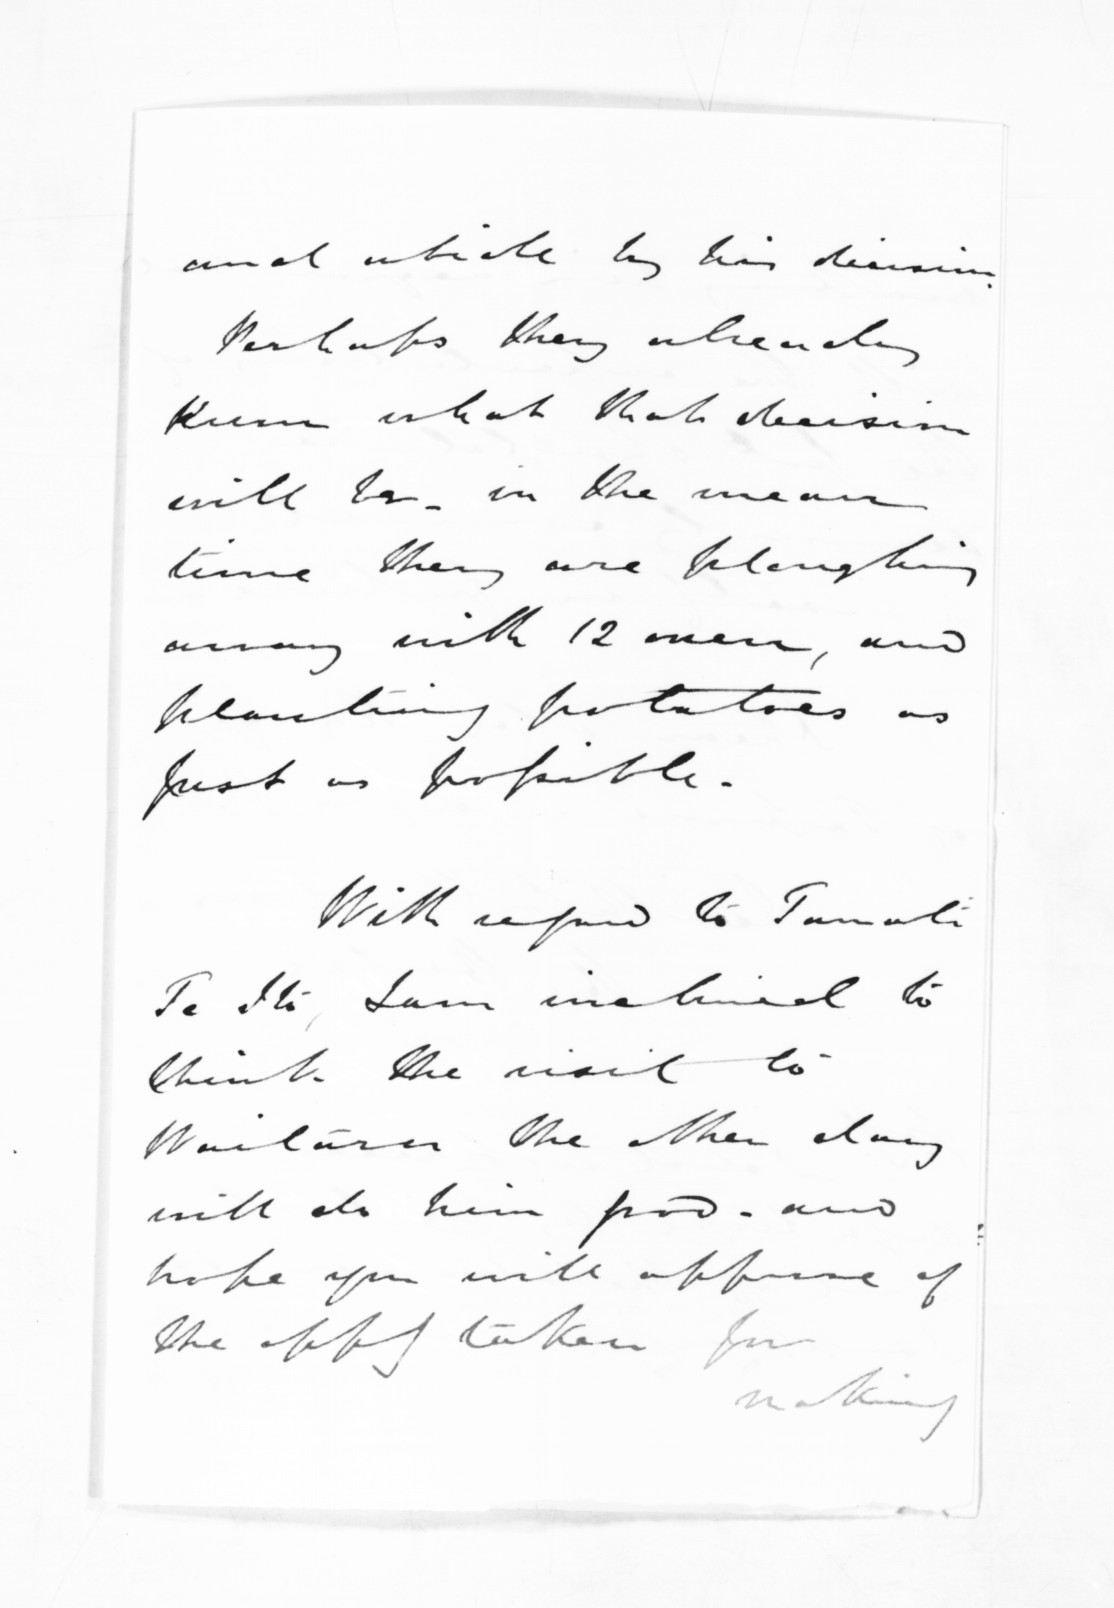 and abide by his decision.
Perhaps they already
know what that decision
will be - in the mean
time they are ploughing
away with 12 oxen, and
planting potatoes as
fast as possible.
With regard to Tamati
Te Ito, I am inclined to
think the visit to
Waitara the other day
will do him good - and
hope you will approve of
the oppy taken for
making